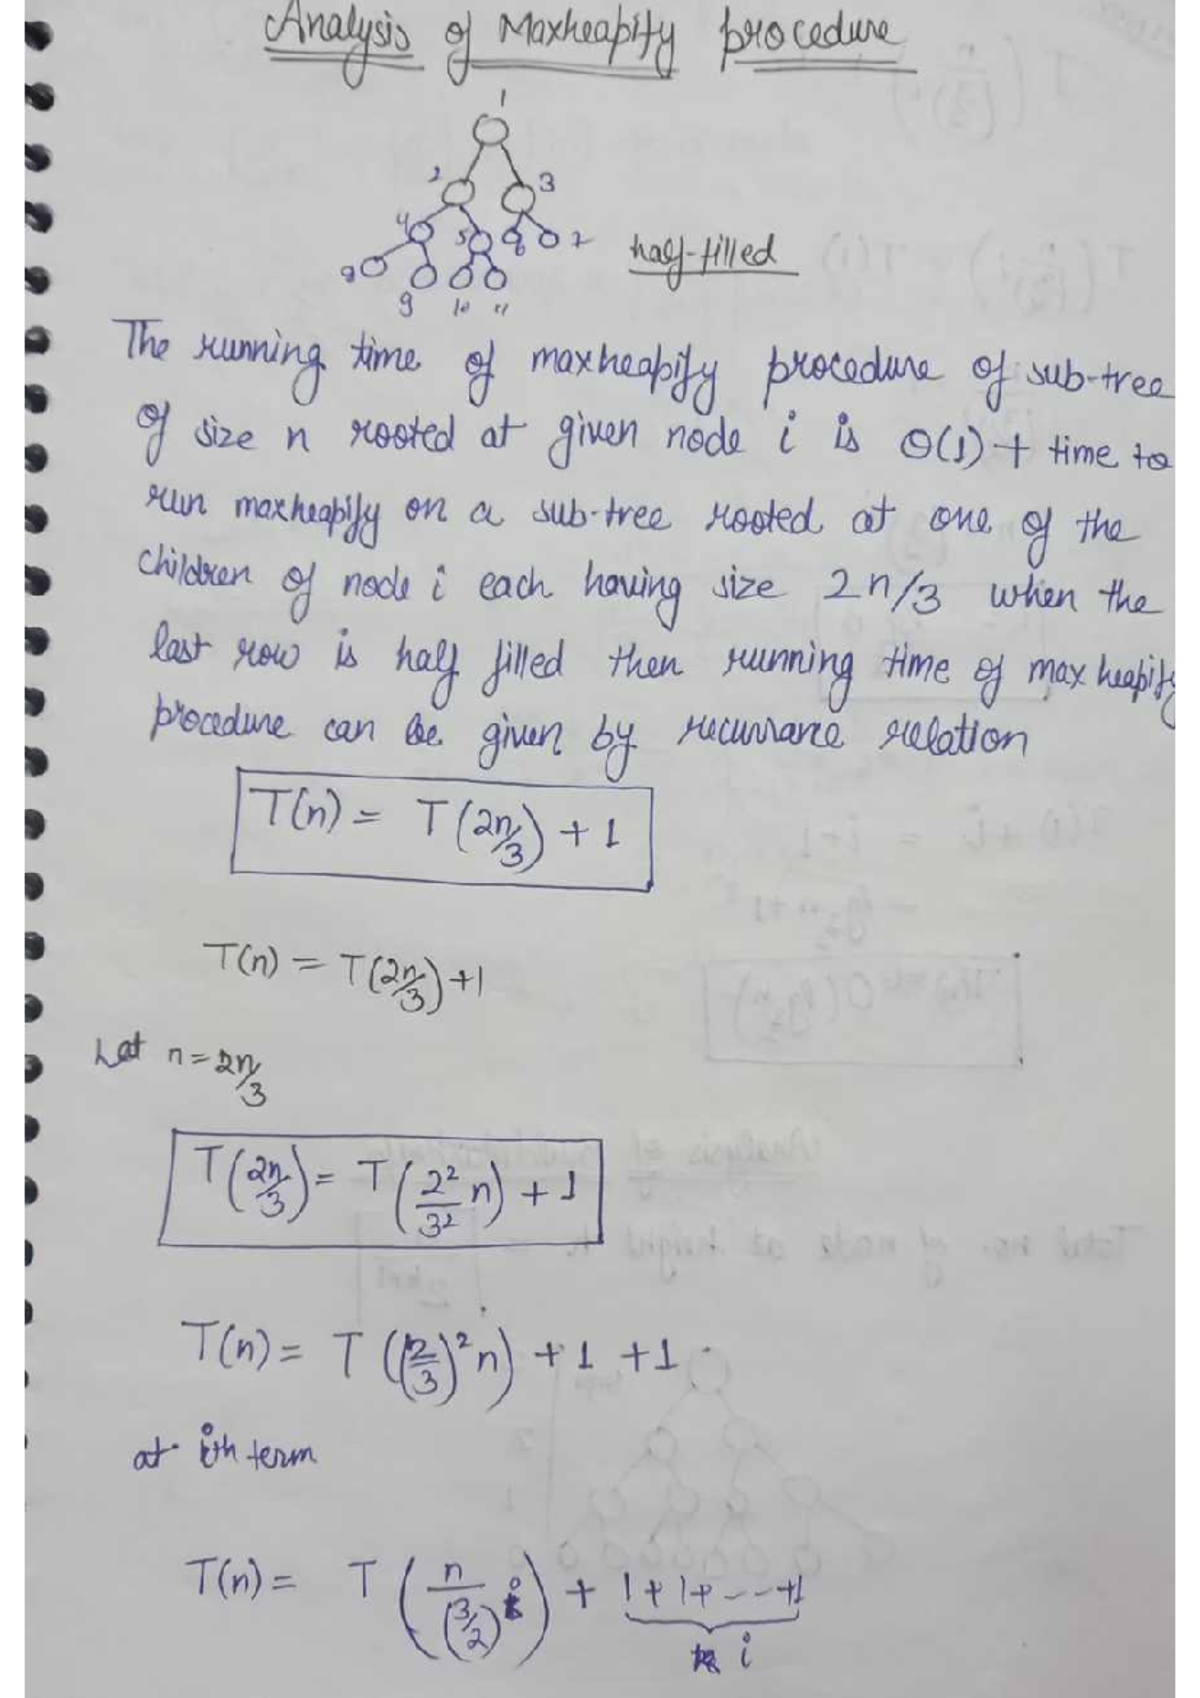 Analysis of Maxheapify procedure
1
2 3
4 5 6 7 half-filled
8
9 10 11
The running time of maxheapify procedure of sub-tree
of size n rooted at given node i is O(1) + time to
run maxheapify on a sub-tree rooted at one of the
children of node i each having size 2n/3 when the
last row is half filled then running time of maxheapify
procedure can be given by recurrance relation
T(n) = T(2n/3) + 1
T(n) = T(2n/3) + 1
Let n = 2n/3
T(2n/3) = T(2²/3² n) + 1
T(n) = T((2/3)² n) + 1 + 1
at ith term
T(n) = T(n/(3/2)^i) + 1 + 1 + - - - + 1
i